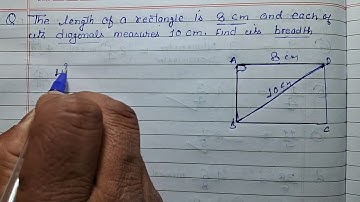 Q. The length of a rectangle is 8 cm and each of
its diagonals measures 10 cm. Find its breadth
A 8 cm D
10 cm
B C